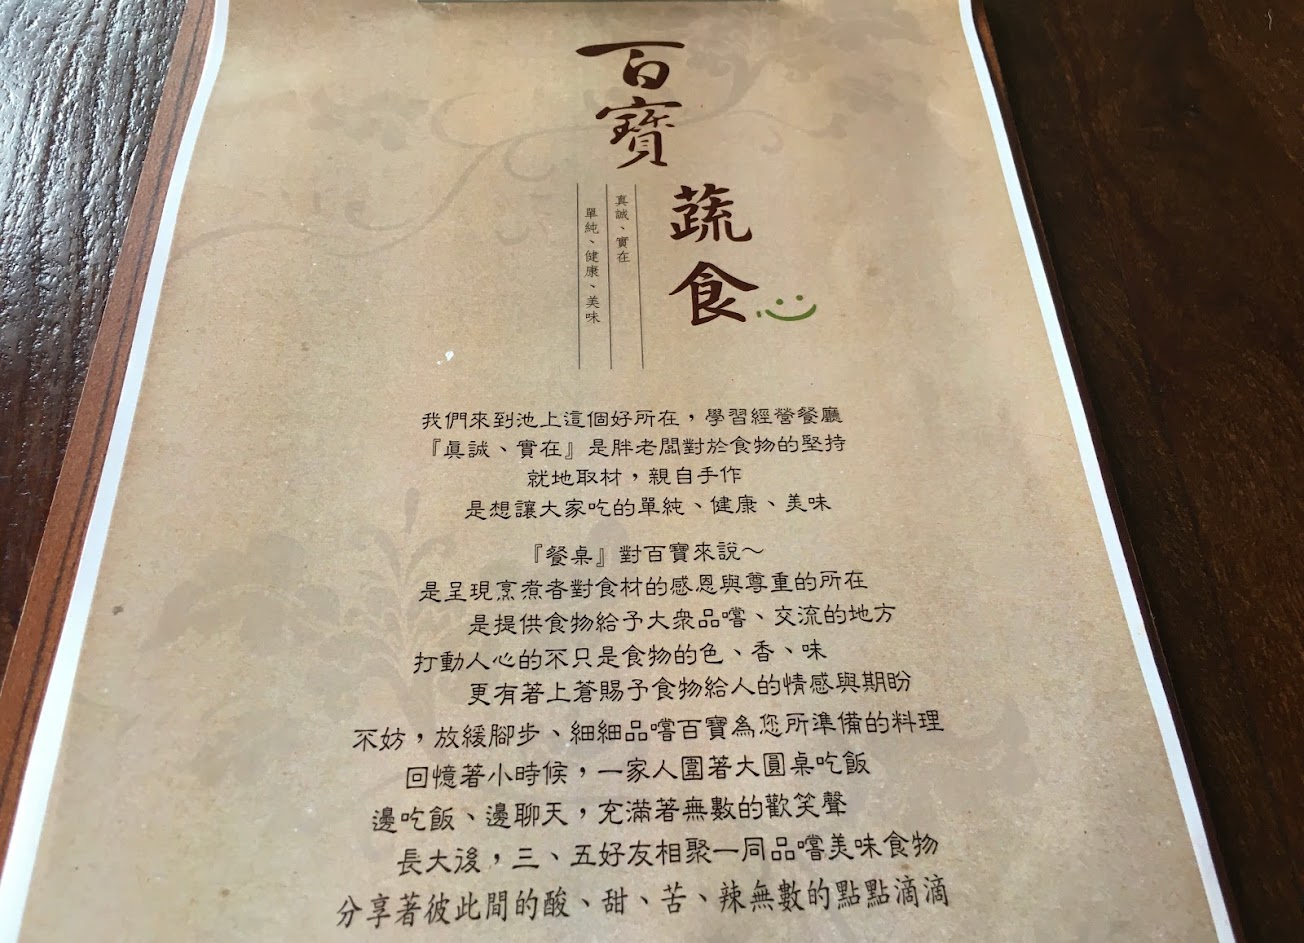 百寶
蔬食
真誠、實在
單純、健康、美味
我們來到池上這個好所在，學習經營餐廳
『真誠、實在』是胖老闆對於食物的堅持
就地取材，親自手作
是想讓大家吃的單純、健康、美味
『餐桌』對百寶來說～
是呈現烹煮者對食材的感恩與尊重的所在
是提供食物給予大眾品嚐、交流的地方
打動人心的不只是食物的色、香、味
更有著上蒼賜予食物給人的情感與期盼
不妨，放緩腳步、細細品嚐百寶為您所準備的料理
回憶著小時候，一家人圍著大圓桌吃飯
邊吃飯、邊聊天，充滿著無數的歡笑聲
長大後，三、五好友相聚一同品嚐美味食物
分享著彼此間的酸、甜、苦、辣無數的點點滴滴